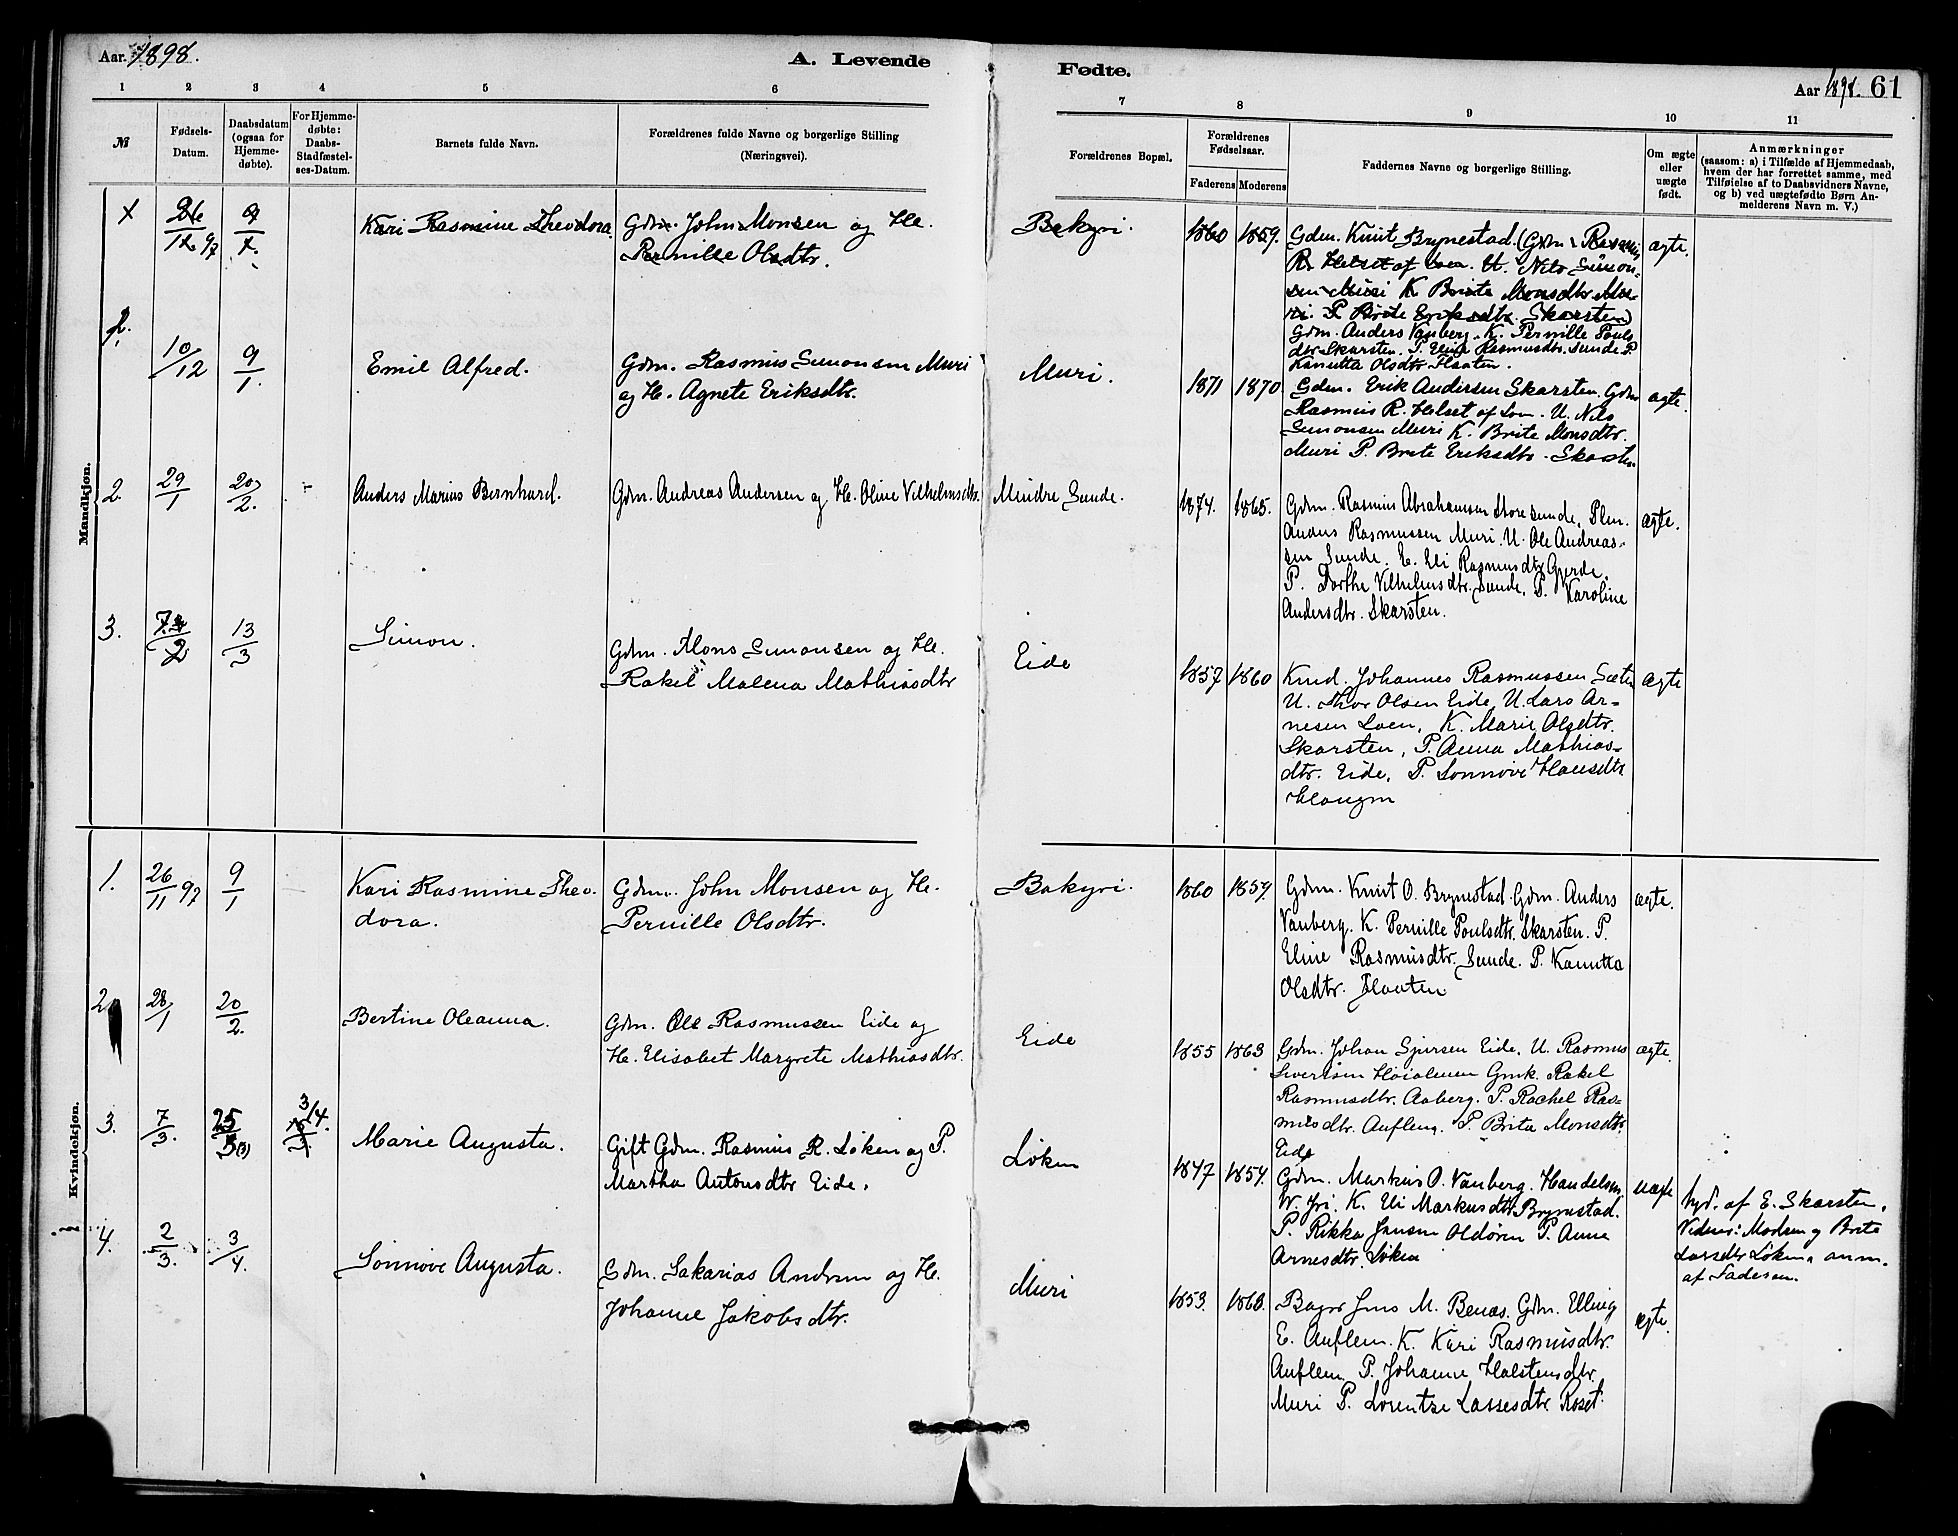 Aar. 1898.
A. Levende
Fødte.
Aar 1898. 61
1 2 3 4 5 6
7 8 9 10 11
№
Fødsels-
Datum.
Daabsdatum
(ogsaa for
Hjemme-
døbte).
For Hjemme-
døbte:
Daabs-
Stadfæstel-
ses-Datum.
Barnets fulde Navn.
Forældrenes fulde Navne og borgerlige Stilling
(Næringsvei).
Forældrenes Bopæl.
Forældrenes
Fødselsaar.
Faderens Moderens
Faddernes Navne og borgerlige Stilling.
Om ægte
eller
uægte
født.
Anmærkninger
(saasom: a) i Tilfælde af Hjemmedaab,
hvem der har forrettet samme, med
Tilføielse af to Daabsvidners Navne,
og b) ved uægtefødte Børn An-
melderens Navn m. V.)
Mandkjøn.
1
26/11 97
9/1.
Kari Rasmine Theodora.
Gdm. John Monsen og He.
Pernille Olsdtr.
Bakyri.
1860 1859.
Gdm. Knut Brynestad. (Gdm. Rasmus
R. Helset af Loen. U. Nils Simon-
sen Muri K. Brite Monsdtr Mu-
ri. P. Brite Eriksdtr. Skarsten)
Gdm. Anders Vanberg. K. Pernille Pouls
dtr Skarsten. P. Eline Rasmusdtr. Sunde P.
Kanutta Olsdtr Flaaten.
ægte.
1.
10/12
9/1.
Emil Alfred.
Gdm. Rasmus Simonsen Muri
og He. Agnete Eriksdtr.
Muri.
1871 1870
Gdm. Erik Andersen Skarsten. Gdm
Rasmus R. Helset af Loen. U. Nils
Simonsen Muri K. Brite Monsdtr.
Muri P. Brite Eriksdtr. Skarsten.
ægte.
2.
29/1
20/2.
Anders Marius Bernhard.
Gdm. Andreas Andersen og He. Oline Vilhelmsdtr.
Mindre Sunde.
1874. 1865.
Gdm. Rasmus Abrahamsen Store sunde, Plm.
Anders Rasmussen Muri. U. Ole Andreas-
sen Sunde. E. Eli Rasmusdtr Gjerde.
P. Dorthe Vilhelmsdtr. Sunde, P. Karoline
Andersdtr. Skarsten.
ægte.
3.
13/3
Simon.
Gdm. Mons Simonsen og He.
Rakel Malena Mathiasdtr
Eide
1857 1860
Kmd. Johannes Rasmussen Sæten
U. Thor Olsen Eide, U. Lars Ar-
nesen Loen, K. Marie Olsdtr.
Skarsten, P. Anna Mathias-
dtr. Eide, P. Sonnøve Hansdtr
Haugen
ægte
Kvindekjøn.
1.
26/11 97
9/1
Kari Rasmine Theo-
dora.
Gdm. John Monsen og He.
Pernille Olsdtr.
Bakyri.
1860 1859.
Gdm. Knut O. Brynestad. Gdm. Anders
Vanberg. K. Pernille Poulsdtr. Skarsten. P.
Eline Rasmusdtr. Sunde. P. Kanutta
Olsdtr. Flaaten
ægte.
2
28/1
20/2.
Bertine Oleanna.
Gdm. Ole Rasmussen Eide og
He. Elisabet Margrete Mathiasdtr.
Eide
1855 1863
Gdm. Johan Sjursen Eide. U. Rasmus
Sivertsen Høialmen Gmk. Rakel
Rasmusdtr. Aaberg. P. Rachel Ras-
musdtr. Auflem. P. Brita Monsdtr.
Eide
ægte.
3.
7/3.
25/3
3/4.
Marie Augusta.
Gift Gdm. Rasmus R. Løken og P.
Martha Antonsdtr Eide.
Løken
1847 1854.
Gdm. Markus O. Vanberg. Handelsm.
W. Yri. K. Eli Markusdtr Brynestad.
P. Rikka Jensen Oldøren P. Anne
Arnesdtr. Løken
uægte
hjd. af E. Skarsten.
Vidner: Modren og Brite
Lassedtr Løken, anm.
af Faderen.
4.
2/3.
3/4.
Sonnøve Augusta.
Gdm. Sakarias Andersen og He.
Johanne Jakobsdtr.
Muri
1853. 1863.
Bager Jens M. Benæs. Gdm. Elling
E. Auflem. K. Kari Rasmusdtr.
Auflem P. Johanne Halstensdtr.
Muri P. Lorentze Lassesdtr. Roset.
ægte.